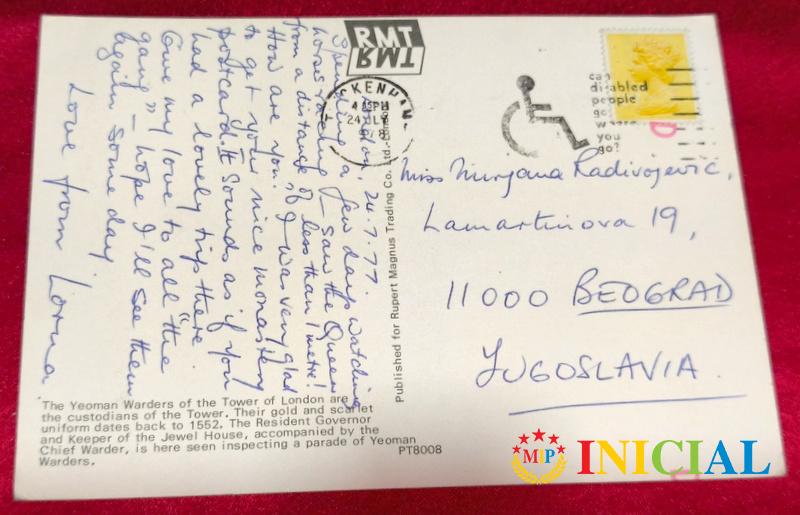 RMT
RMT
London, 24.7.77.
Spending a few days watching
horse racing – saw the Queen
from a distance of less than 1 metre!
How are you? I was very glad
to get your nice monastery
postcard. It sounds as if you
had a lovely trip there.
Give my love to all "the
gang" – hope I'll see them
again some day.
Love from Lorna
The Yeoman Warders of the Tower of London are
the custodians of the Tower. Their gold and scarlet
uniform dates back to 1552. The Resident Governor
and Keeper of the Jewel House, accompanied by the
Chief Warder, is here seen inspecting a parade of Yeoman
Warders.
PT8008
Published for Rupert Magnus Trading Co. Ltd.-London
CKENHAM
24 JLY
can
disabled
people
go
where
you
go?
Miss Mirjana Radivojević,
Lamartinova 19,
11000 BEOGRAD
YUGOSLAVIA.
MIP INICIAL